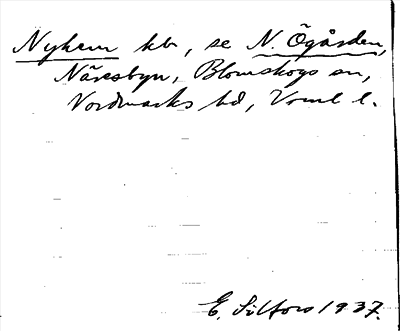 Nyhem kb, se N. Ögården,
Näresbyn, Blomskogs sn,
Nordmarks hd, Vrml l.
E. Silfors 1937.